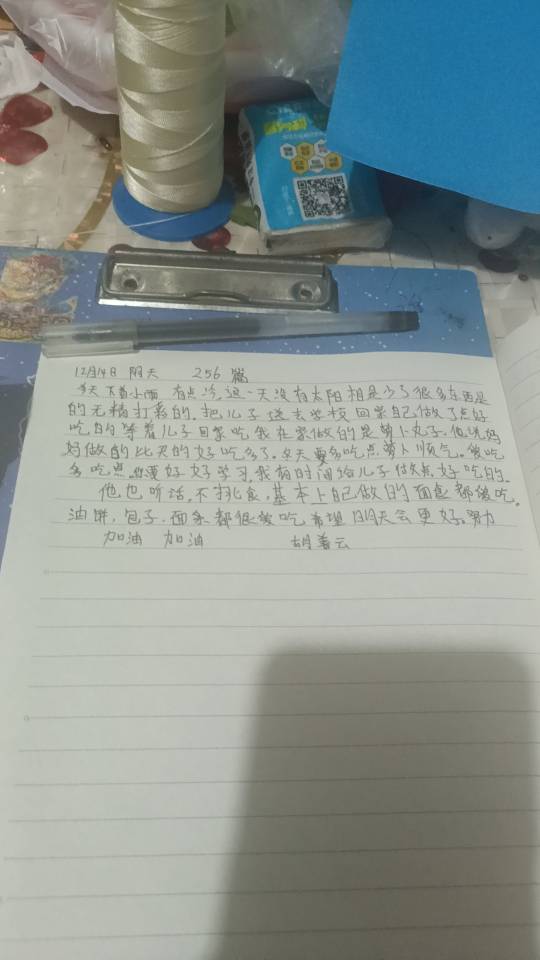 12月14日 阴天 256篇
今天下着小雨 有点冷,这一天没有太阳相是少了很多东西是
的无精打采的.把儿子送去学校回家自己做了点好
吃的等着儿子回家吃我在家做的是萝卜丸子.他说妈
妈做的比买的好吃多了.冬天要多吃点萝卜顺气。能吃
多吃点.你要好好学习.我有时间给儿子做点好吃的.
他也听话,不挑食.基本上自己做的面食都能吃.
油饼,包子.面条都很能吃 希望明天会更好.努力
加油 加油 胡善云